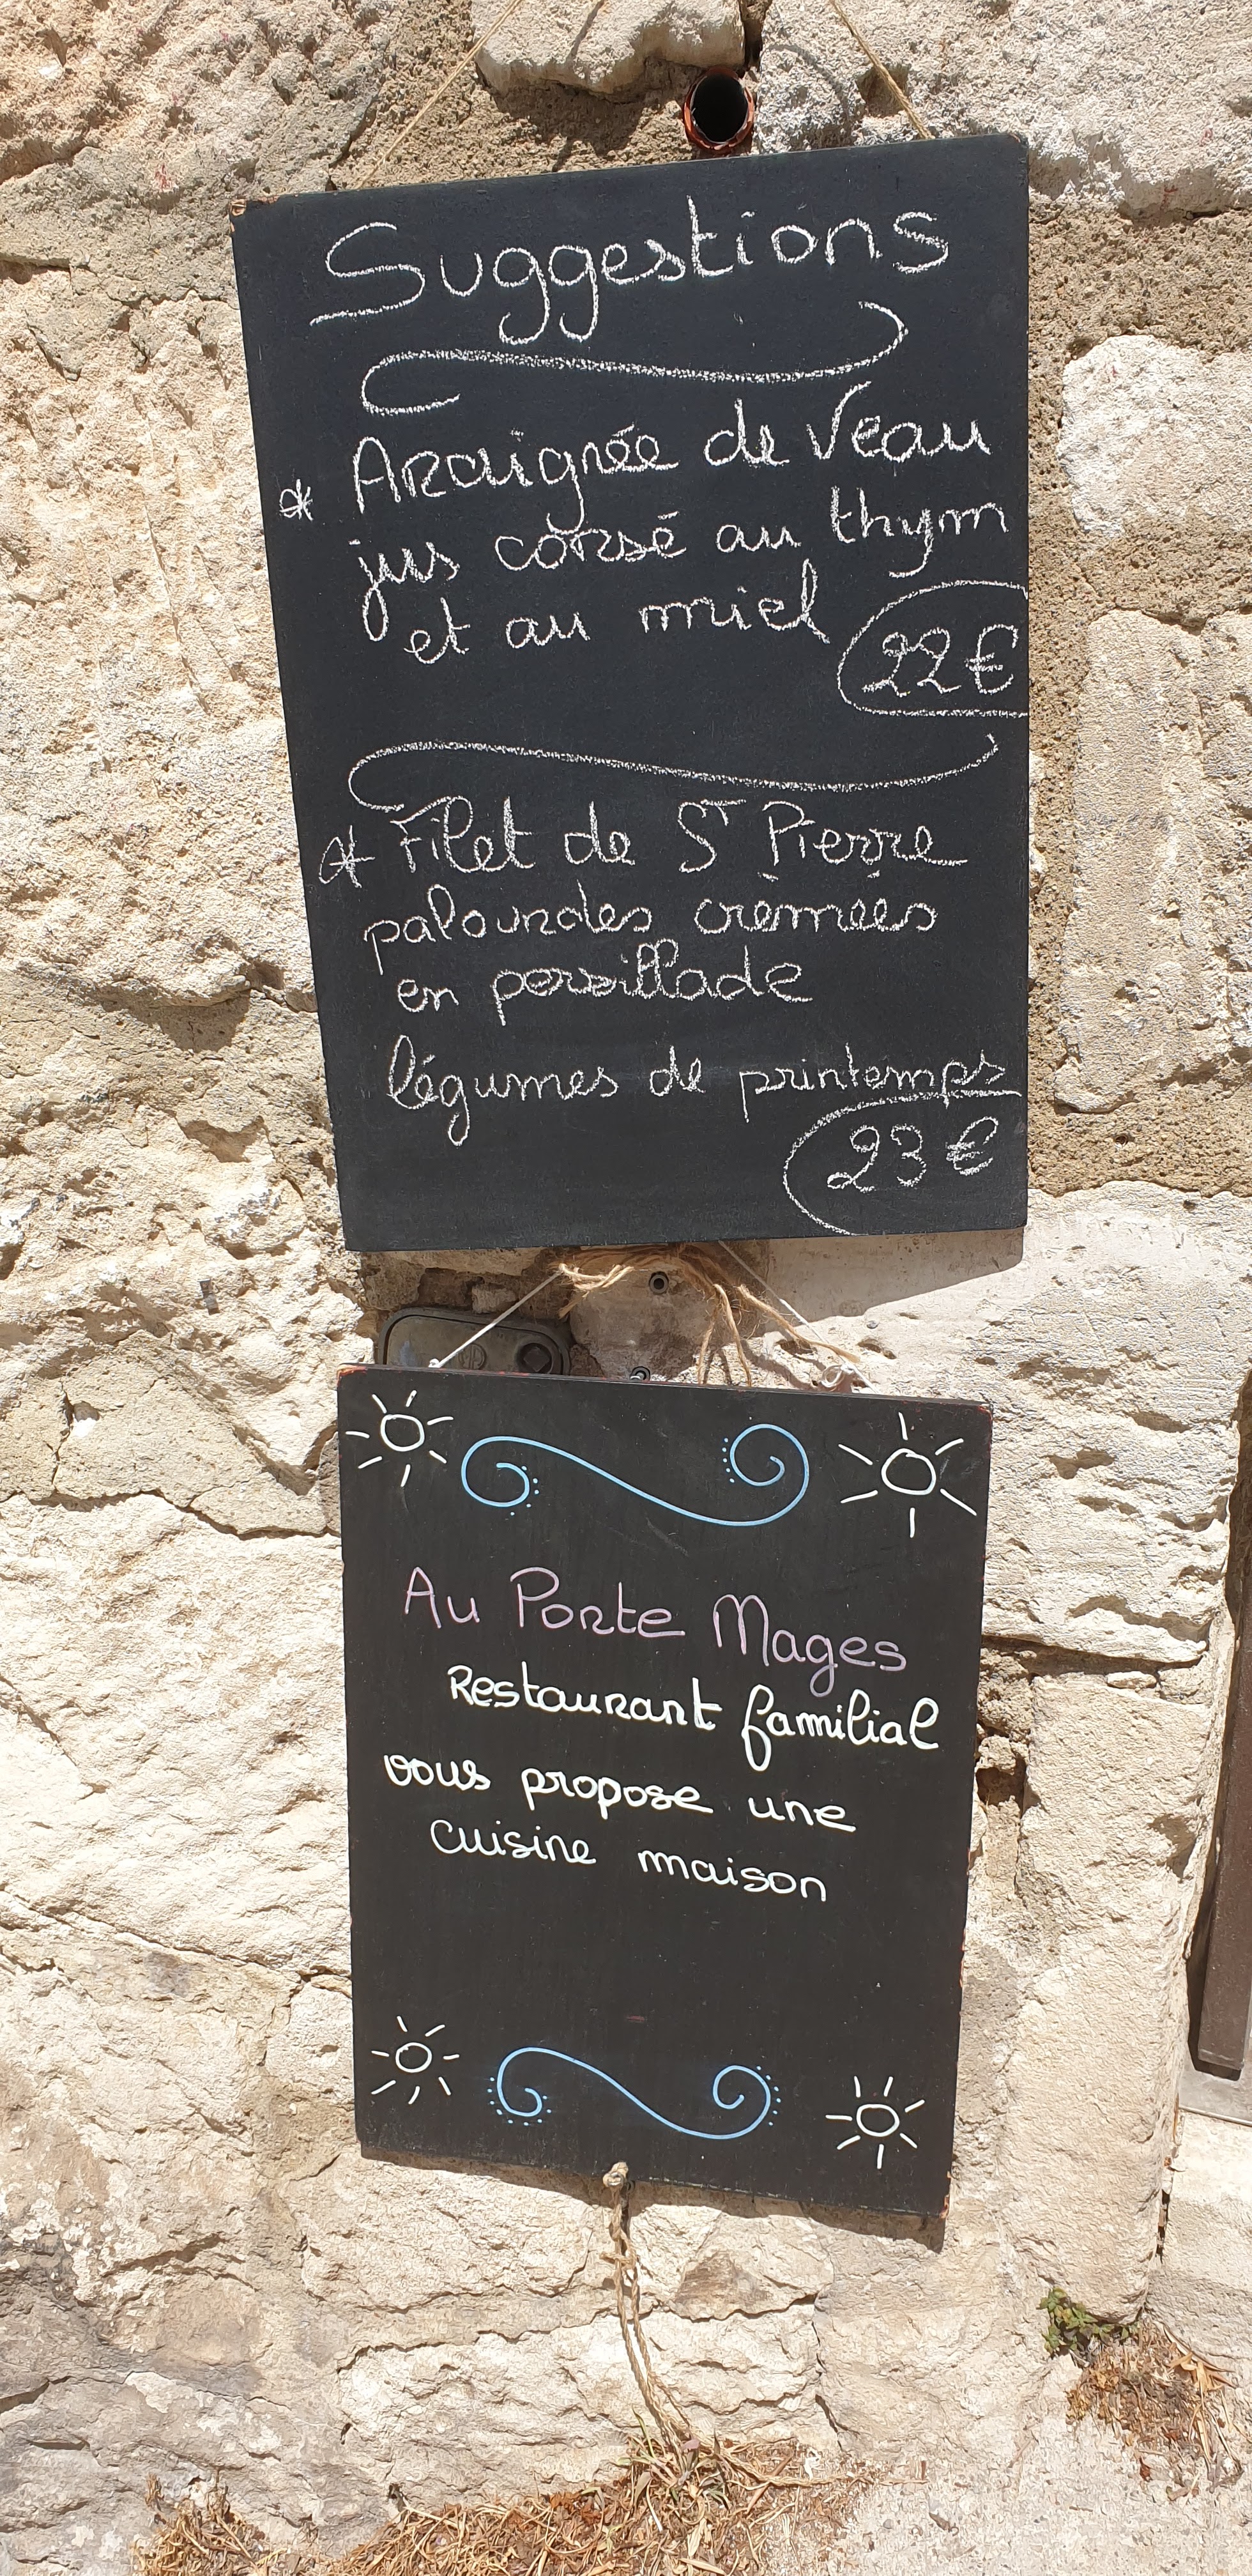 Suggestions
* Araignée de Veau
jus corsé au thym
et au miel
22€
* Filet de St Pierre
palourdes crèmées
en persillade
légumes de printemps
23€
Au Porte Mages
Restaurant familial
vous propose une
cuisine maison